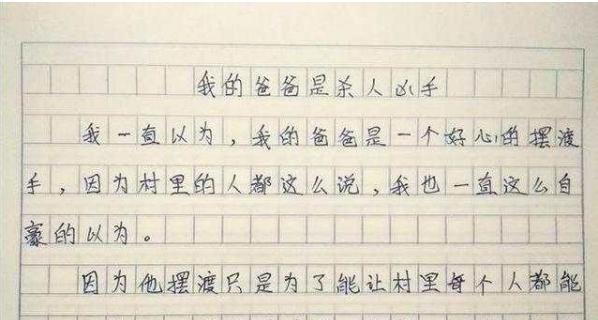 我的爸爸是杀人凶手
我一直以为，我的爸爸是一个好心的摆渡
手，因为村里的人都这么说，我也一直这么自
豪的以为。
因为他摆渡只是为了能让村里每个人都能